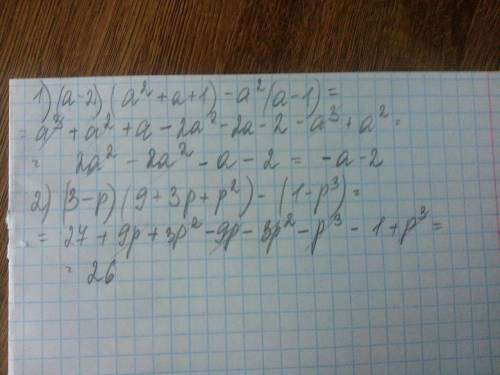 1) (a-2) (a² + a + 1) - a² (a-1) =
= a³ + a² + a - 2a² - 2a - 2 - a³ + a² =
= 2a² - 2a² - a - 2 = -a - 2
2) (3-p) (9 + 3p + p²) - (1-p³) =
= 27 + 9p + 3p² - 9p - 3p² - p³ - 1 + p³ =
= 26